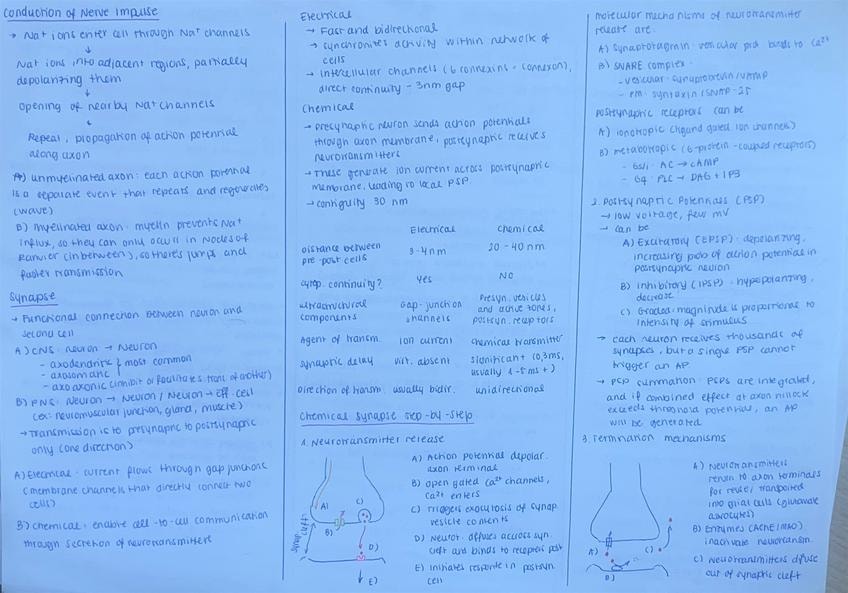 Conduction of Nerve Impulse
→ Na+ ions enter cell through Na+ channels
↓
Na+ ions into adjacent regions, partially
depolarizing them
↓
Opening of nearby Na+ channels
↓
Repeat, propagation of action potential
along axon
A) unmyelinated axon: each action potential
is a separate event that repeats and regenerates
(wave)
B) myelinated axon: myelin prevents Na+
influx, so they can only occur in Nodes of
Ranvier (in between), so there's jumps and
faster transmission
Synapse
→ Functional connection between neuron and
second cell
A) CNS: neuron → Neuron
- axodendritic } most common
- axosomatic
- axo axonic (inhibit or facilitates trans. of another)
B) PNS: Neuron → Neuron / Neuron → Eff. cell
(ex: neuromuscular junction, gland, muscle)
→ Transmission is to presynaptic to postsynaptic
only (one direction)
A) Electrical: current flows through gap junctions
(membrane channels that directly connect two
cells)
B) Chemical: enable cell-to-cell communication
through secretion of neurotransmitters
Electrical
→ Fast and bidirectional
→ synchronizes activity within network of
cells
→ Intercellular channels (6 connexins = connexon),
direct continuity - 3nm gap
Chemical
→ Presynaptic neuron sends action potentials
through axon membrane, postsynaptic receives
neurotransmitters
→ These generate ion current across postsynaptic
membrane, leading to local PSP
→ contiguity 30 nm
Electrical Chemical
Distance between pre-post cells 3-4nm 20-40nm
cytop. continuity? Yes No
ultrastructural components Gap-junction channels Presyn. vesicles and active zones, postsyn. receptors
Agent of transm. Ion current chemical transmitter
synaptic delay virt. absent significant (0,3ms, usually 1-5ms+)
Direction of transm. usually bidir. unidirectional
Chemical Synapse Step-by-Step
1. Neurotransmitter release
A) Action potential depolar.
axon terminal
B) open gated Ca2+ channels,
Ca2+ enters
C) Triggers exocytosis of synap.
vesicle contents
D) Neurot. diffuses accross syn.
cleft and binds to receptors post
E) Initiates response in postsyn.
cell
A)
C)
B)
D)
E)
molecular mechanisms of neurotransmitter
release are:
A) synaptotagmin: vesicular prot. binds to Ca2+
B) SNARE complex:
- vesicular: synaptobrevin/VAMP
- PM: syntaxin/SNAP-25
Postsynaptic receptors can be
A) Ionotropic (ligand gated ion channels)
B) metabotropic (G-protein-coupled receptors)
- Gs/i: AC → cAMP
- Gq: PLC → DAG + IP3
2. Postsynaptic Potentials (PSP)
→ low voltage, few mV
→ can be
A) Excitatory (EPSP): depolarizing,
increasing prob of action potential in
postsynaptic neuron
B) Inhibitory (IPSP): hyperpolarizing,
decrease
C) Graded: magnitude is proportional to
intensity of stimulus
→ each neuron receives thousands of
synapses, but a single PSP cannot
trigger an AP
→ PSP summation: PSPs are integrated,
and if combined effect at axon hillock
exceeds threshold potential, an AP
will be generated
3. Termination mechanisms
A) Neurotransmitters
return to axon terminals
for reuse / transported
into glial cells (glutamate
astrocytes)
B) Enzymes (AChE/MAO)
inactivate neurotransm.
C) Neurotransmitters diffuse
out of synaptic cleft
A)
C)
B)